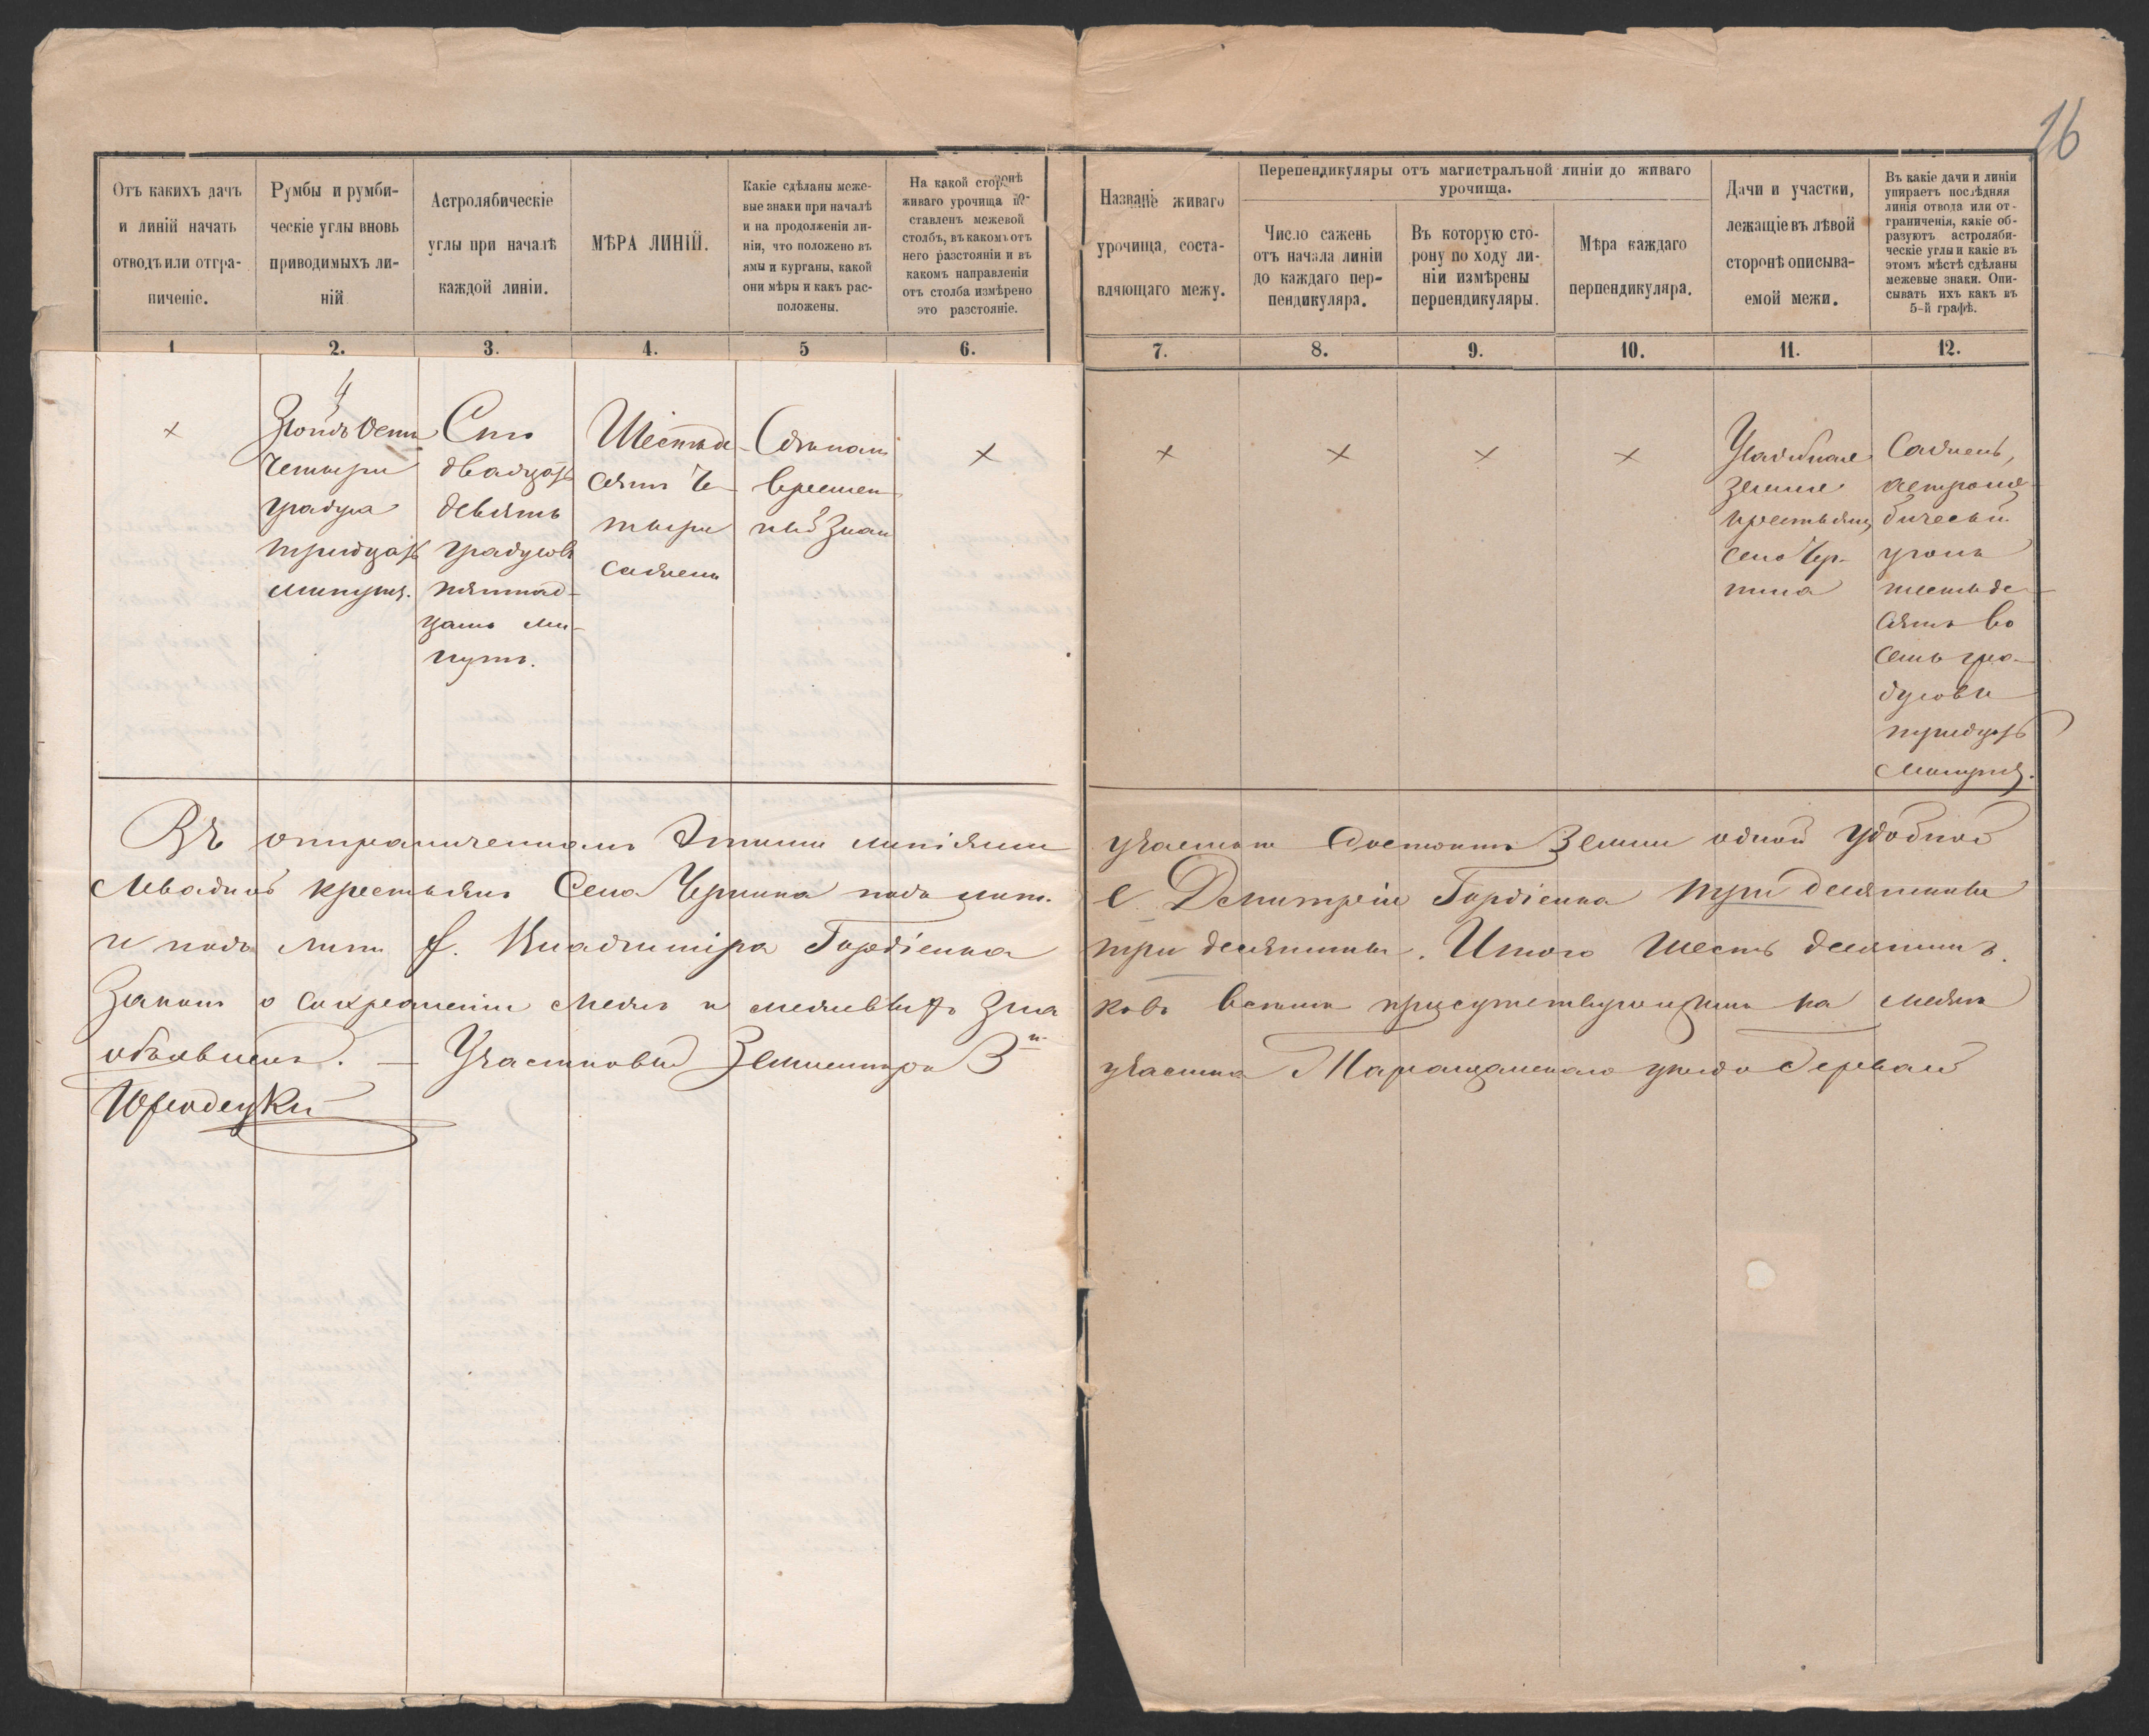 16
Отъ какихъ дачъ
и линій начать
отводъ или отгра-
ниченіе.
Румбы и румби-
ческіе углы вновь
приводимыхъ ли-
ній
Астролябическіе
углы при началѣ
каждой линіи.
МѢРА ЛИНІЙ.
Какіе сдѣланы меже-
вые знаки при началѣ
и на продолженіи ли-
ніи, что положено въ
ямы и курганы, какой
они мѣры и какъ рас-
положены.
На какой сторонѣ
живаго урочища по-
ставленъ межевой
столбъ, въ какомъ отъ
него разстояніи и въ
какомъ направленіи
отъ столба измѣрено
это разстояніе.
Названіе живаго
урочища, соста-
вляющаго межу.
Перепендикуляры отъ магистральной линіи до живаго
урочища.
Число сажень
отъ начала линіи
до каждаго пер-
пендикуляра.
Въ которую сто-
рону по ходу ли-
ніи измѣрены
перпендикуляры.
Мѣра каждаго
перпендикуляра.
Дачи и участки,
лежащіе въ лѣвой
сторонѣ описыва-
емой межи.
Въ какіе дачи и линіи
упираетъ послѣдняя
линія отвода или от-
граниченія, какіе об-
разуютъ астроляби-
ческіе углы и какіе въ
этомъ мѣстѣ сдѣланы
межевые знаки. Опи-
сывать ихъ какъ въ
5-й графѣ.
1 2. 3. 4. 5 6. 7. 8. 9. 10. 11. 12.
×
4
Зюйдъ Остъ
четыри
градуса
тридцать
минутъ.
Сто
двадцать
девять
градусовъ
пятнад-
цать ми-
нутъ.
Шестьде-
сятъ че-
тыри
сажени
Сдѣланъ
времен-
ный знак
×
×
×
×
×
Усадебная
земля
крестьянъ
села Чер-
нина
Сажень,
астроля-
бическій
уголъ
шестьде-
сятъ во
семь гра-
дусовъ
тридцать
минутъ.
Въ отграниченномъ этими линіями участкѣ состоитъ земли одной удобной
левадной крестьянъ Села Чернина подъ лит. е Дмитрія Гордіенка три десятины
и подъ лит f. Владиміра Гордіенка три десятины. Итого шесть десятинъ.
Законъ о сохраненіи межъ и межевыхъ зна ковъ всѣмъ присутствующимъ на межѣ
объявленъ. — Участковый Землемѣръ 3го участка Таращанскаго уѣзда